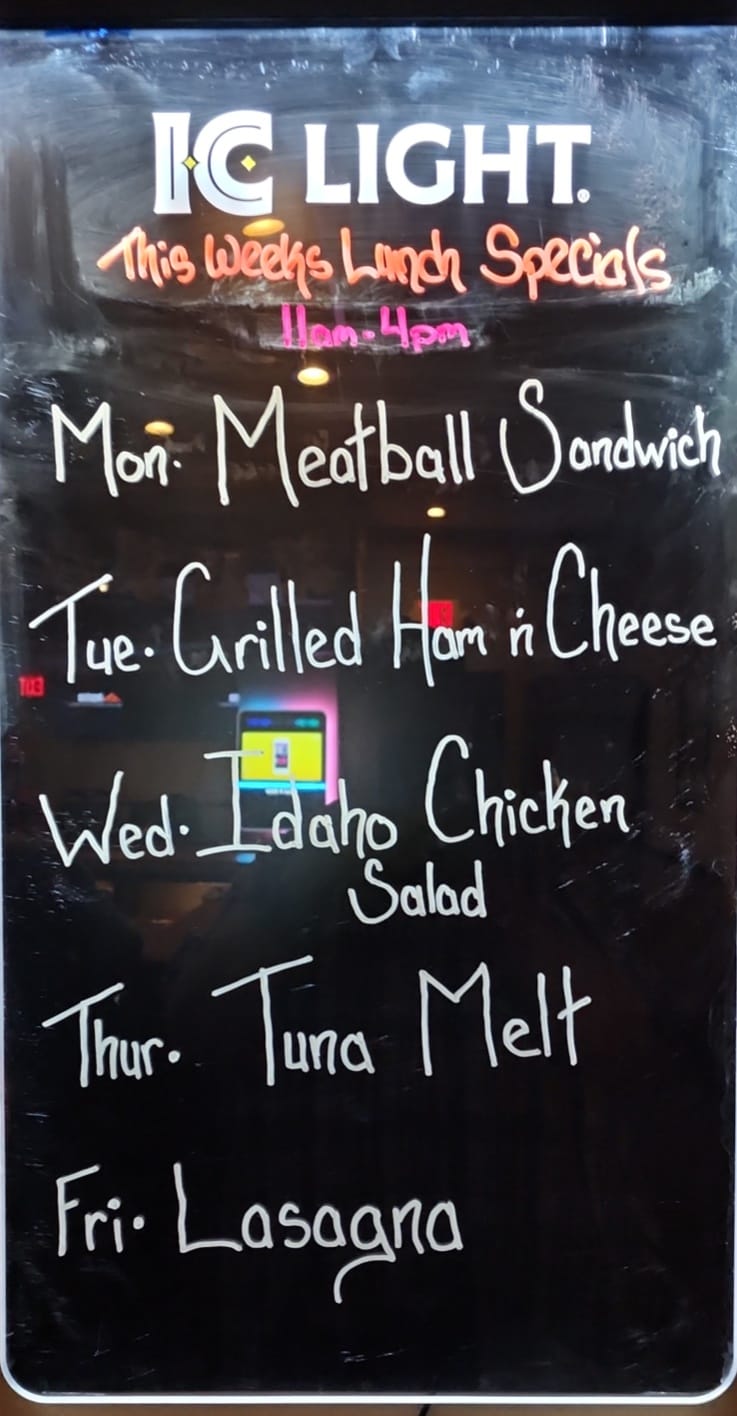 IC LIGHT®
This Weeks Lunch Specials
11am-4pm
Mon. Meatball Sandwich
Tue. Grilled Ham n' Cheese
Wed. Idaho Chicken
Salad
Thur. Tuna Melt
Fri. Lasagna